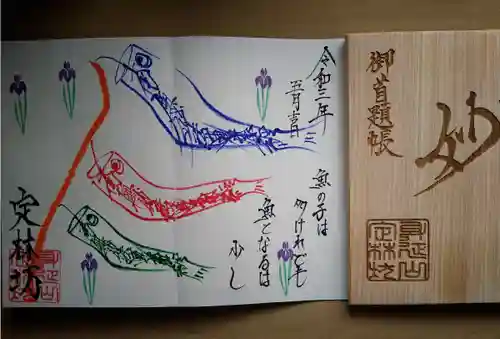 令和三年
五月吉日
魚の子は
多けれども
魚となるは
少し
定林坊
御首題帳
妙
身延山
定林坊